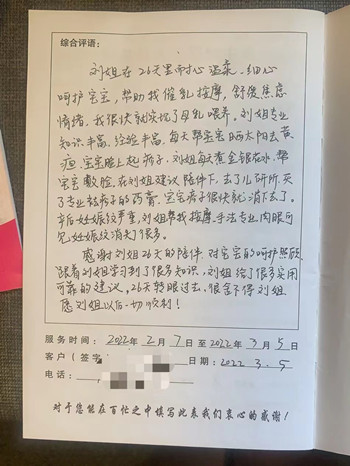 综合评语：
刘姐在26天里耐心温柔、细心
呵护宝宝，帮助我催乳按摩，舒缓焦虑
情绪，我很快就实现了母乳喂养。刘姐专业
知识丰富，经验丰富，每天帮宝宝晒太阳去黄
疸，宝宝脸上起痱子，刘姐每天煮金银花水，帮
宝宝敷脸，在刘姐建议陪伴下，去了儿研所买
了专业祛痱子的药膏，宝宝痱子很快就消下去了。
产后妊娠纹严重，刘姐帮我按摩，手法专业，肉眼可
见妊娠纹消失了很多。
感谢刘姐26天的陪伴，对宝宝的呵护照顾，
跟着刘姐学习到了很多知识，刘姐给了很多实用
可靠的建议，26天转眼过去，很舍不得刘姐
愿刘姐以后一切顺利！
服务时间：2022年2月7日至2022年3月5日
客户（签字
日期：2022.3.5
电话：
对于您能在百忙之中填写此表我们衷心的感谢！